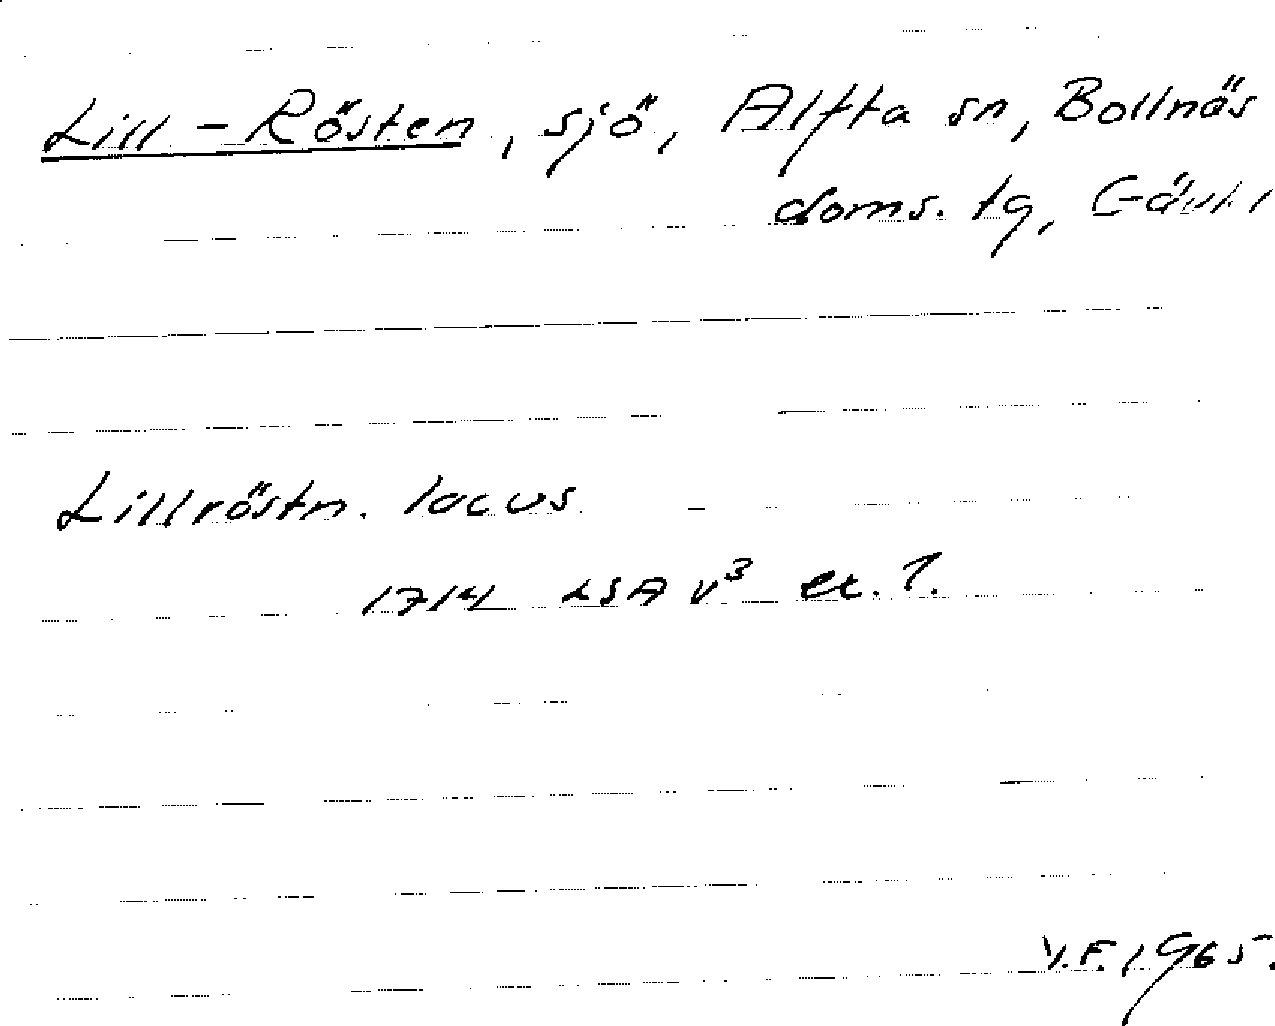 Lill-Rösten, sjö, Alfta sn, Bollnäs
doms. tg, Gävl.l
Lillröstn. lacus
1714 LSA V³ ex. 1.
V.F. 1965.